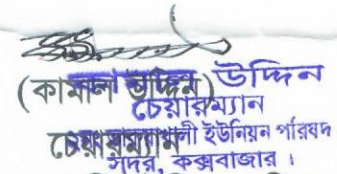 (কামাল উদ্দিন)
উদ্দিন
চেয়ারম্যান
চেয়ারম্যান
ইউনিয়ন পরিষদ
সদর, কক্সবাজার।